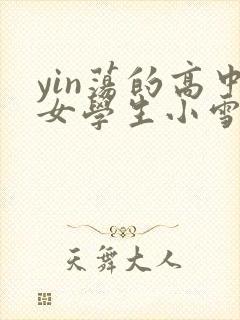 yin蕩的高中
女學生小雪
天舞大人